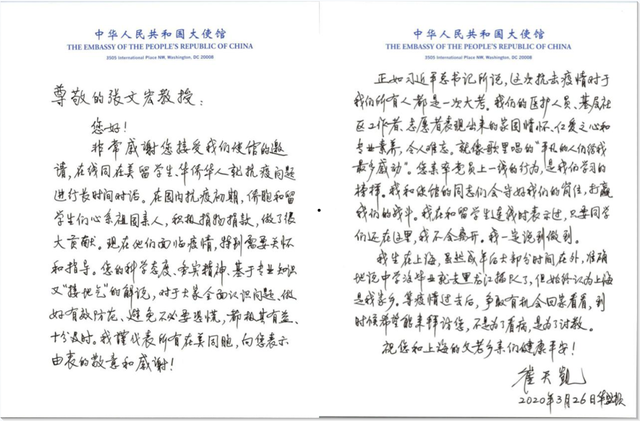 中华人民共和国大使馆
THE EMBASSY OF THE PEOPLE'S REPUBLIC OF CHINA
3505 International Place NW, Washington, DC 20008
尊敬的张文宏教授：
您好！
非常感谢您接受我们使馆的邀
请，在线同在美留学生、华侨华人就抗疫问题
进行长时间对话。在国内抗疫初期，侨胞和留
学生们心系祖国亲人，积极捐物捐款，做了很
大贡献。现在他们面临疫情，特别需要关怀
和指导。您的科学态度、务实精神、基于专业知识
又“接地气”的解说，对于大家全面认识问题、做
好有效防范、避免不必要恐慌，都极其有益、
十分及时。我谨代表所有在美同胞，向您表示
由衷的敬意和感谢！
中华人民共和国大使馆
THE EMBASSY OF THE PEOPLE'S REPUBLIC OF CHINA
3505 International Place NW, Washington, DC 20008
正如习近平总书记所说，这次抗击疫情对于
我们所有人都是一次大考。我们的医护人员、基层社
区工作者、志愿者表现出来的家国情怀、仁爱之心和
专业素养，令人难忘，就像歌里唱的“平凡的人们给我
最多感动”。您亲率党员上一线的行为，是我们学习的
榜样。我和使馆的同志们会守好我们的岗位，打赢
我们的战斗。我在和留学生连线时表示过，只要同学
们还在这里，我不会离开。我一定说到做到。
我生在上海，虽然成年后大部分时间在外，准确
地说中学没毕业就去黑龙江插队了，但始终认为上海
是我家乡。等疫情过去后，争取有机会回家看看，到
时候希望能来拜访您，不是为了看病，是为了讨教。
祝您和上海的父老乡亲们健康平安！
崔天凯
2020年3月26日